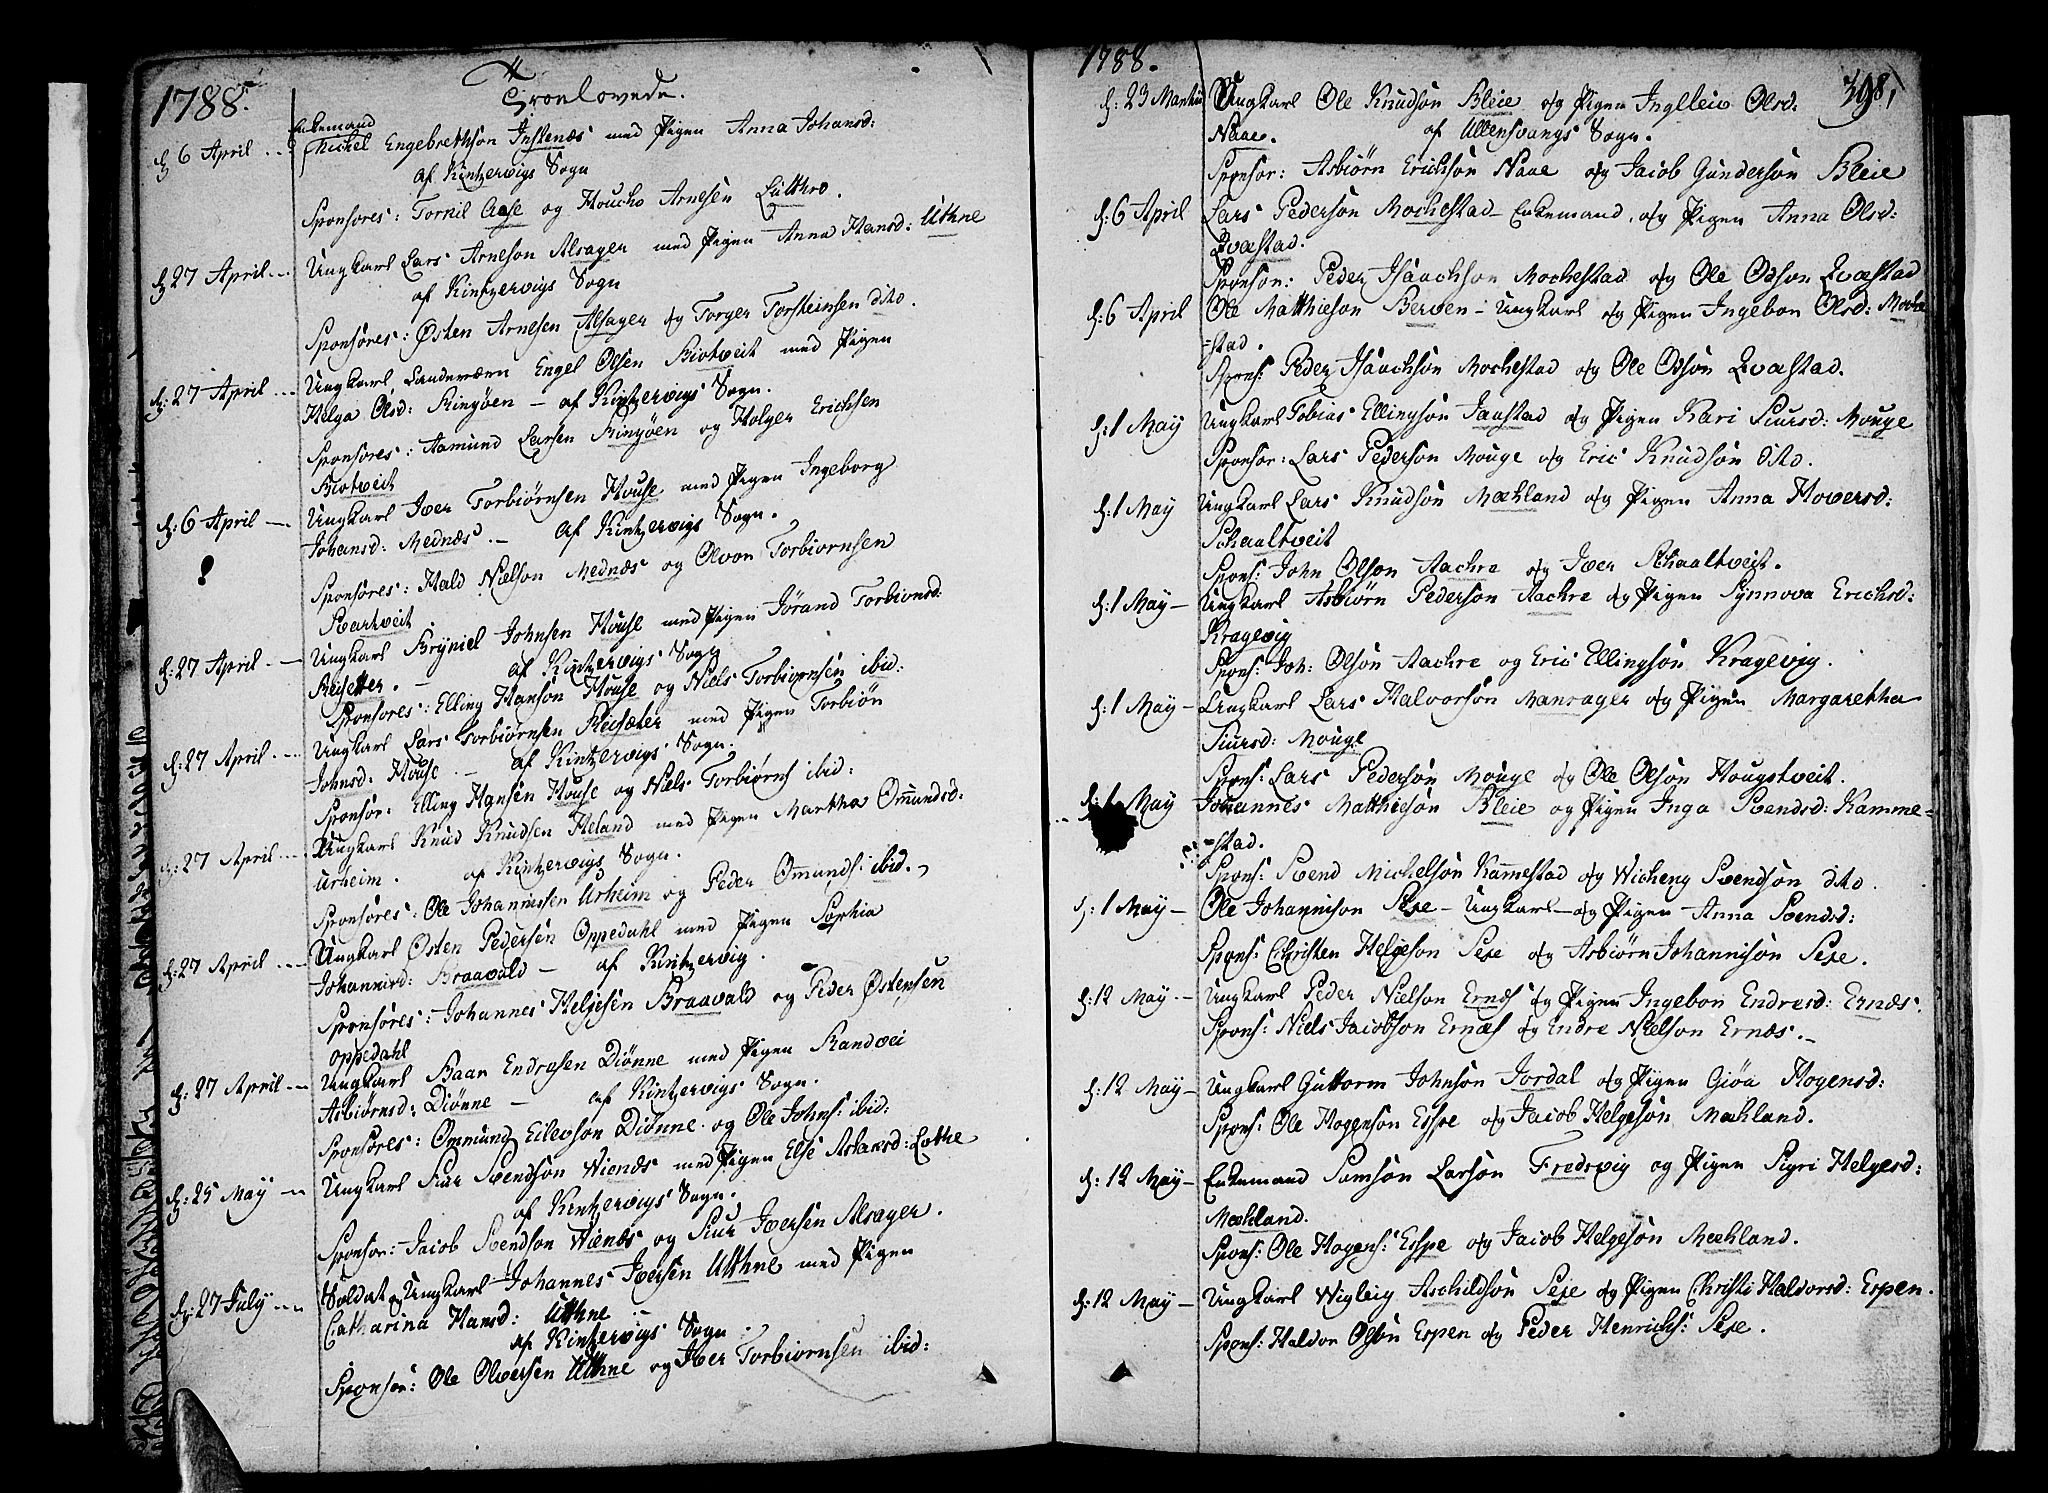 1788.
Troelovede.
d: 6 April
Enkemand
Michel Engebrethsøn Instenæs med Pigen Anna Johansd:
af Kintzervigs Sogn
Sponsores: Tornil Aase og Houcho Arnesen Lutthro.
d: 27 April
Ungkarl Lars Arneson Alsager med Pigen Anna Hansd: Uthne
af Kintzervigs Sogn
Sponsores: Østen Arnesen Alsager og Torger Torsteinsen dito.
d: 27 April
Ungkarl Landeværn Engel Olsen Biotveit med Pigen
Helga Olsd: Ringøen – af Kintzervigs Sogn.
Sponsores: Aamund Larsen Ringøen og Holger Erichsen
Biotveit
d: 6 April
Ungkarl Iver Torbiørnsen House med Pigen Ingeborg
Johansd: Mednæs. – af Kintzervigs Sogn.
Sponsores: Hald Nielson Mednæs og Olvon Torbiornsen
Svartveit
d: 27 April
Ungkarl Bryniel Johnsen House med Pigen Jørand Torbionsd:
Reisetter. – af Kintzervigs Sogn
Sponsores: Elling Hanson House og Niels Torbiornsen ibid:
d: 27 April
Ungkarl Lars Torbiørnsen Reisæter med Pigen Torbiøn
Johnsd: House. – af Kintzervigs Sogn.
Sponsor: Elling Hansen House og Niels Torbiørns ibid:
d: 27 April
Ungkarl Knud Knudsen Heland med Pigen Martha Omundsd:
Urheim. af Kintzervigs Sogn.
Sponsores: Ole Johannessen Urheim og Peder Omunds: ibid.
d: 27 April
Ungkarl Østen Pedersen Oppedahl med Pigen Sophia
Johannisd: Braavald – af Kintzervig.
Sponsores: Johannes Helgesen Braavald og Peder Østensen
Oppedahl
d: 27 April
Ungkarl Baar Endresen Diønne med Pigen Randvei
Asbiørnsd: Diønne – af Kintzervigs Sogn.
Sponsores: Ommund Eilevson Diønne og Ole Johns: ibid:
d: 25 May
Ungkarl Siur Svendsøn Wienæs med Pigen Else Aslaksd: Lothe
af Kintzervigs Sogn.
Sponsor: Jacob Svendson Wienæs og Siur Iversen Alsager.
d: 27 July
Soldat & Ungkarl Johannes Iversen Utthne med Pigen
Catharina Hansd: Utthne
af Kintzervigs Sogn.
Sponsor: Ole Olversen Utthne og Iver Torbiornsen ibid:
1788.
398,
d: 23 Martii
Ungkarl Ole Knudsøn Bleie og Pigen Ingleiv Olsd:
Naae. af Ullensvangs Sogn.
Sponsor: Asbiørn Erichsøn Naae og Jacob Gundersøn Bleie
d: 6 April
Lars Pedersøn Mochestad – Enkemand, og Pigen Anna Olsd:
Qvæstad.
Sponson: Peder Isaachson Mochestad og Ole Odson Qvæstad
d: 6 April
Ole Matthieson Berven – Ungkarl og Pigen Ingebor Olsd: Moche
=stad.
Spons: Peder Isaachsøn Mochestad og Ole Odsøn Qvastad.
d: 1 May
Ungkarl Tobias Ellingsøn Jaastad og Pigen Kari Siursd: Mouge
Sponsor: Lars Pederson Mouge og Eric Knudsøn dito.
d: 1 May
Ungkarl Lars Knudsøn Mæhland og Pigen Anna Hoversd:
Schaaltveit
Spons: John Olson Aachre og Iver Schaaltveit.
d: 1 May –
Ungkarl Asbiørn Pederson Aachre og Pigen Synnova Erichsd:
Kragevig
Spons: Joh: Olsøn Aachre og Eric Ellingsøn Kragevig.
d: 1 May –
Ungkarl Lars Halvorsøn Mansager og Pigen Margaretha
Siursd: Mouge
Spons: Lars Pedersøn Mouge og Ole Olsøn Hougstveit.
d: 1 May
Johannes Matthiesøn Bleie og Pigen Inga Svendsd: Kamme=
=stad.
Spons: Svend Michelsøn Kamestad og Wicheng Svendsøn dito.
d: 1 May –
Ole Johannison Sexe – Ungkarl – og Pigen Anna Svendsd:
Spons: Christen Helgeson Sexe og Asbiørn Johannisøn Sexe.
d: 12 May. –
Ungkarl Peder Nielson Ernæs og Pigen Ingebor Endresd: Ernæs.
Spons: Niels Jacobson Ernæs og Endre Nielson Ernæs. –
d: 12 May –
Ungkarl Guttorm Johnson Jordal og Pigen Giøa Hogensd:
Spons: Ole Hogenson Espe og Jacob Helgesøn Mæhland.
d: 12 May –
Enkemand Samsøn Larsøn Fredsvig og Pigen Sigri Helgesd:
Mæhland.
Spons: Ole Hogens: Espe og Jacob Helgesøn Mæhland.
d: 12 May –
Ungkarl Wigleig Aschildsøn Sexe og Pigen Christi Haldorsd: Espen.
Spons: Haldor Olsøn Espen og Peder Henrichs: Sexe.